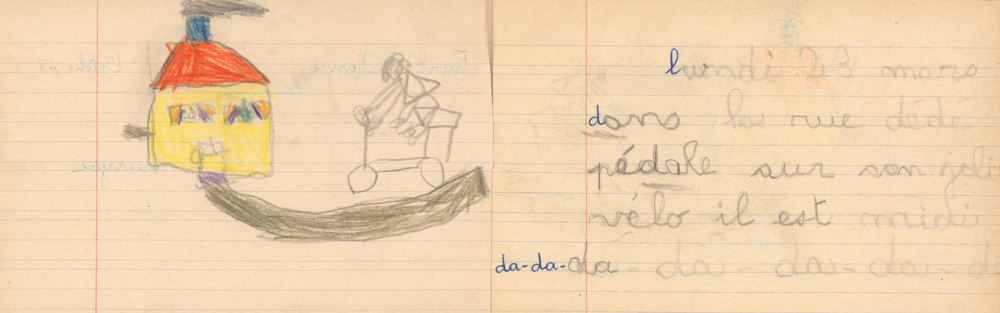 lundi 23 mars
dans la rue dédé
pédale sur son joli
vélo il est midi
da-da-da-da-da-da-da